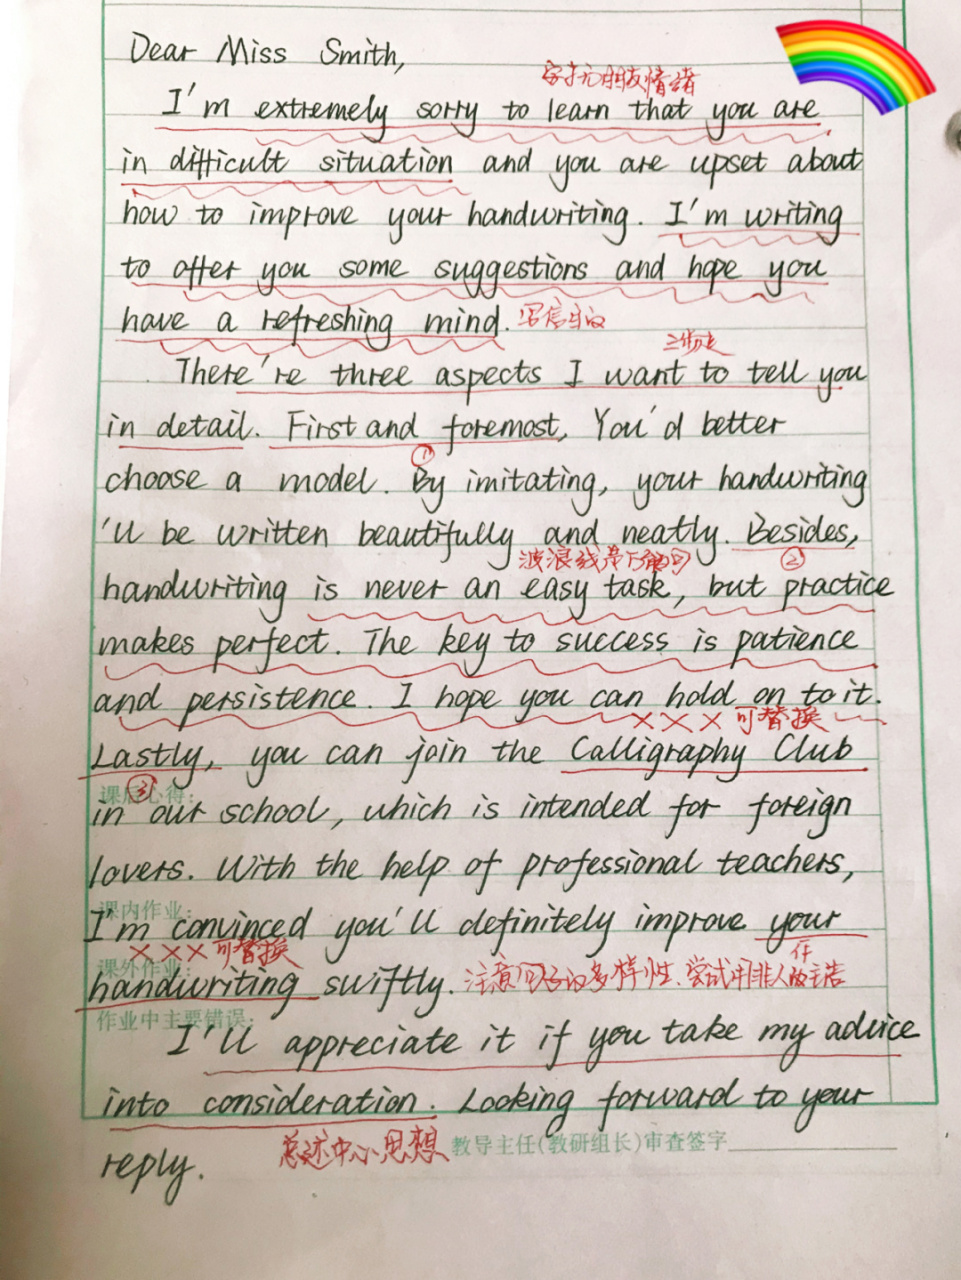 Dear Miss Smith,
安抚朋友情绪
I'm extremely sorry to learn that you are
in difficult situation and you are upset about
how to improve your handwriting. I'm writing
to offer you some suggestions and hope you
have a refreshing mind. 写信目的
三步走
There're three aspects I want to tell you
in detail. First and foremost, You'd better
①
choose a model. By imitating, your handwriting
'll be written beautifully and neatly. Besides,
波浪线是万能句 ②
handwriting is never an easy task, but practice
makes perfect. The key to success is patience
and persistence. I hope you can hold on to it.
××× 可替换
Lastly, you can join the Calligraphy Club
课后心得: ③
in our school, which is intended for foreign
lovers. With the help of professional teachers,
课内作业:
I'm convinced you'll definitely improve your
××× 可替换
课外作业:
handwriting swiftly. 注意句子的多样性、尝试用非人称作主语
作业中主要错误:
I'll appreciate it if you take my advice
into consideration. Looking forward to your
总述中心思想 教导主任(教研组长)审查签字
reply.